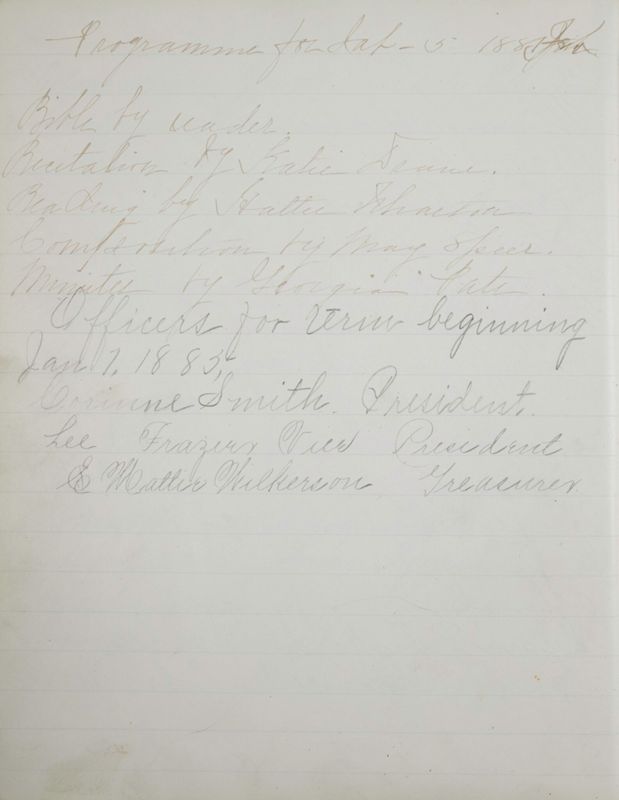 Programme for Sat - 5 188
Bible by reader.
Recitation by Katie Deane.
Reading by Hattie Wharton
Composition by May Speer.
Minutes by Georgia Pate.
Officers for term beginning
Jan 1, 1883,
Corinne Smith. President.
Lee Frazer, Vice President
& Mattie Wilkerson Treasurer.